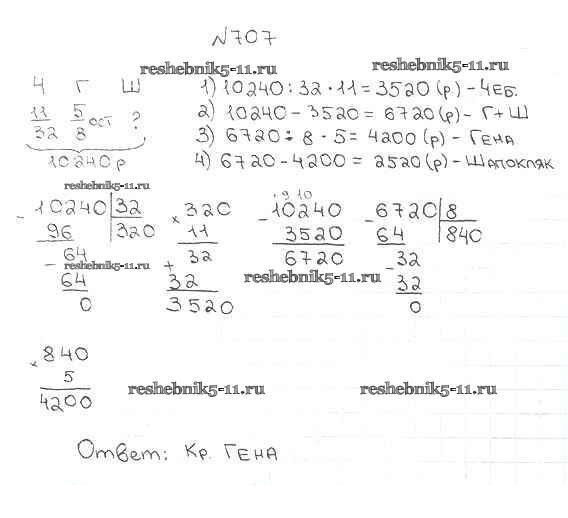 №707
reshebnik5-11.ru reshebnik5-11.ru
Ч Г Ш 1) 10240 : 32 · 11 = 3520 (р.) – ЧЕБ.
11/32 5/8 ост ? 2) 10240 – 3520 = 6720 (р) – Г+Ш
3) 6720 : 8 · 5 = 4200 (р) – ГЕНА
10240 р 4) 6720 – 4200 = 2520 (р) – ШАПОКЛЯК
reshebnik5-11.ru
· 9 10
- 10240 32 × 320 - 10240 - 6720 8
96 320 11 3520 64 840
- 64 32 6720 - 32
reshebnik5-11.ru reshebnik5-11.ru
64 + 32 32
0 3520 0
× 840
5
4200
reshebnik5-11.ru reshebnik5-11.ru
Ответ: Кр. ГЕНА